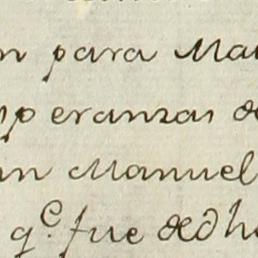 n para Mar
mp eranzas de
an Manuel
q.e fue de dho